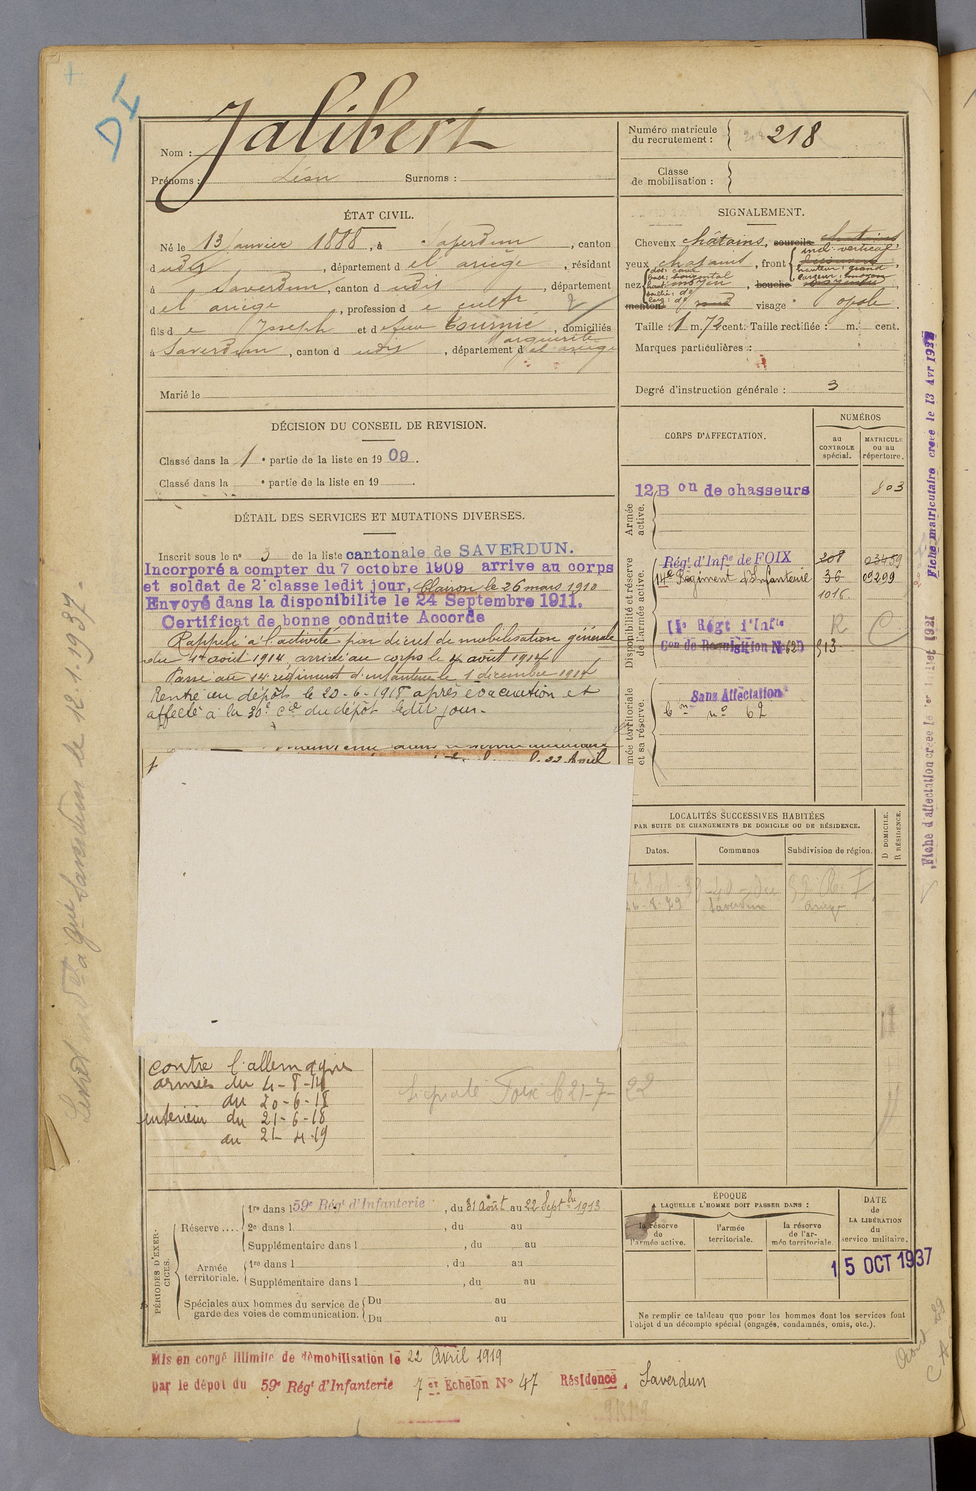 DI
Nom : Jalibert
Prénoms : Léon Surnoms :
Numéro matricule du recrutement : 218
Classe de mobilisation :
ÉTAT CIVIL.
Né le 13 Janvier 1888, à Saverdun, canton
dudit, département d el'ariège, résidant
à Saverdun, canton d udit, département
d el ariège, profession d e cultr
fils d e Joseph et d e feue Tournié Marguerite, domiciliés
à Saverdun, canton d udit, département d el'ariège
Marié le
SIGNALEMENT.
Cheveux châtains, sourcils châtains
yeux châtains, front incl: vertical, hauteur: grand, largeur: moyen
nez dos: base: horizontal haut: moyen, bouche moyenne
menton rond visage ovale
Taille : 1 m. 72 cent. Taille rectifiée : m. cent.
Marques particulières :
Degré d'instruction générale : 3
DÉCISION DU CONSEIL DE REVISION.
Classé dans la 1e partie de la liste en 1909.
Classé dans la e partie de la liste en 19
DÉTAIL DES SERVICES ET MUTATIONS DIVERSES.
Inscrit sous le n° 3 de la liste cantonale de SAVERDUN.
Incorporé a compter du 7 octobre 1909 arrive au corps
et soldat de 2e classe ledit jour, Clairon le 26 mars 1910
Envoyé dans la disponibilite le 24 Septembre 1911.
Certificat de bonne conduite Accorde
Rappelé à l'activité par décret de mobilisation générale
du 1er août 1914, arrivé au corps le 4 août 1914
Passé au 14e régiment d'infanterie le 1 décembre 1914
Rentré au dépôt le 20-6-1918 après évacuation et
affecté à la 30e Cie du dépôt ledit jour.
CORPS D'AFFECTATION.
NUMÉROS
au CONTROLE spécial.
MATRICULE ou au répertoire.
Armée active.
12 Bon de chasseurs 803
Disponibilité et réserve de l'armée active.
Régt d'Infie de FOIX 208
14e Régiment d'Infanterie 36 09209
1016
Régt d'Infie R C
Con de Requisition N° 620 513
Armée territoriale et sa réserve.
Sans Affectation
n° 62
LOCALITÉS SUCCESSIVES HABITÉES
PAR SUITE DE CHANGEMENTS DE DOMICILE OU DE RÉSIDENCE.
Dates. Communes Subdivision de région.
D DOMICILE. R RÉSIDENCE.
Saverdun Ariège
contre l'allemagne
armées du 4-8-14
au 20-6-18
intérieur du 21-6-18
au 21 4-19
Foix 21-7-22
PÉRIODES D'EXERCICES.
Réserve .... 1re dans l 59e Régt d'Infanterie, du 31 août au 22 Septbre 1913
2e dans l , du au
Supplémentaire dans l , du au
Armée territoriale. 1re dans l , du au
Supplémentaire dans l , du au
Spéciales aux hommes du service de garde des voies de communication. Du au
Du au
ÉPOQUE
A LAQUELLE L'HOMME DOIT PASSER DANS :
la réserve de l'armée active.
l'armée territoriale.
la réserve de l'armée territoriale.
DATE DE LA LIBÉRATION du service militaire.
15 OCT 1937
Ne remplir ce tableau que pour les hommes dont les services font
l'objet d'un décompte spécial (engagés, condamnés, omis, etc.).
Mis en congé illimité de démobilisation le 22 Avril 1919
par le dépot du 59e Régt d'Infanterie 7 er Echelon N° 47 Résidence, Saverdun
Saverdun le 12.1.1937.
Fiche matriculaire créée le 13 Avr
Fiche d'affectation créée le 1er Juillet 1921